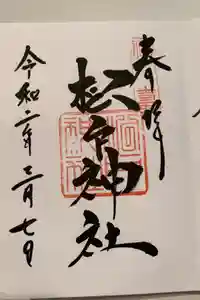 奉拝
杉戸神社
令和二年三月七日